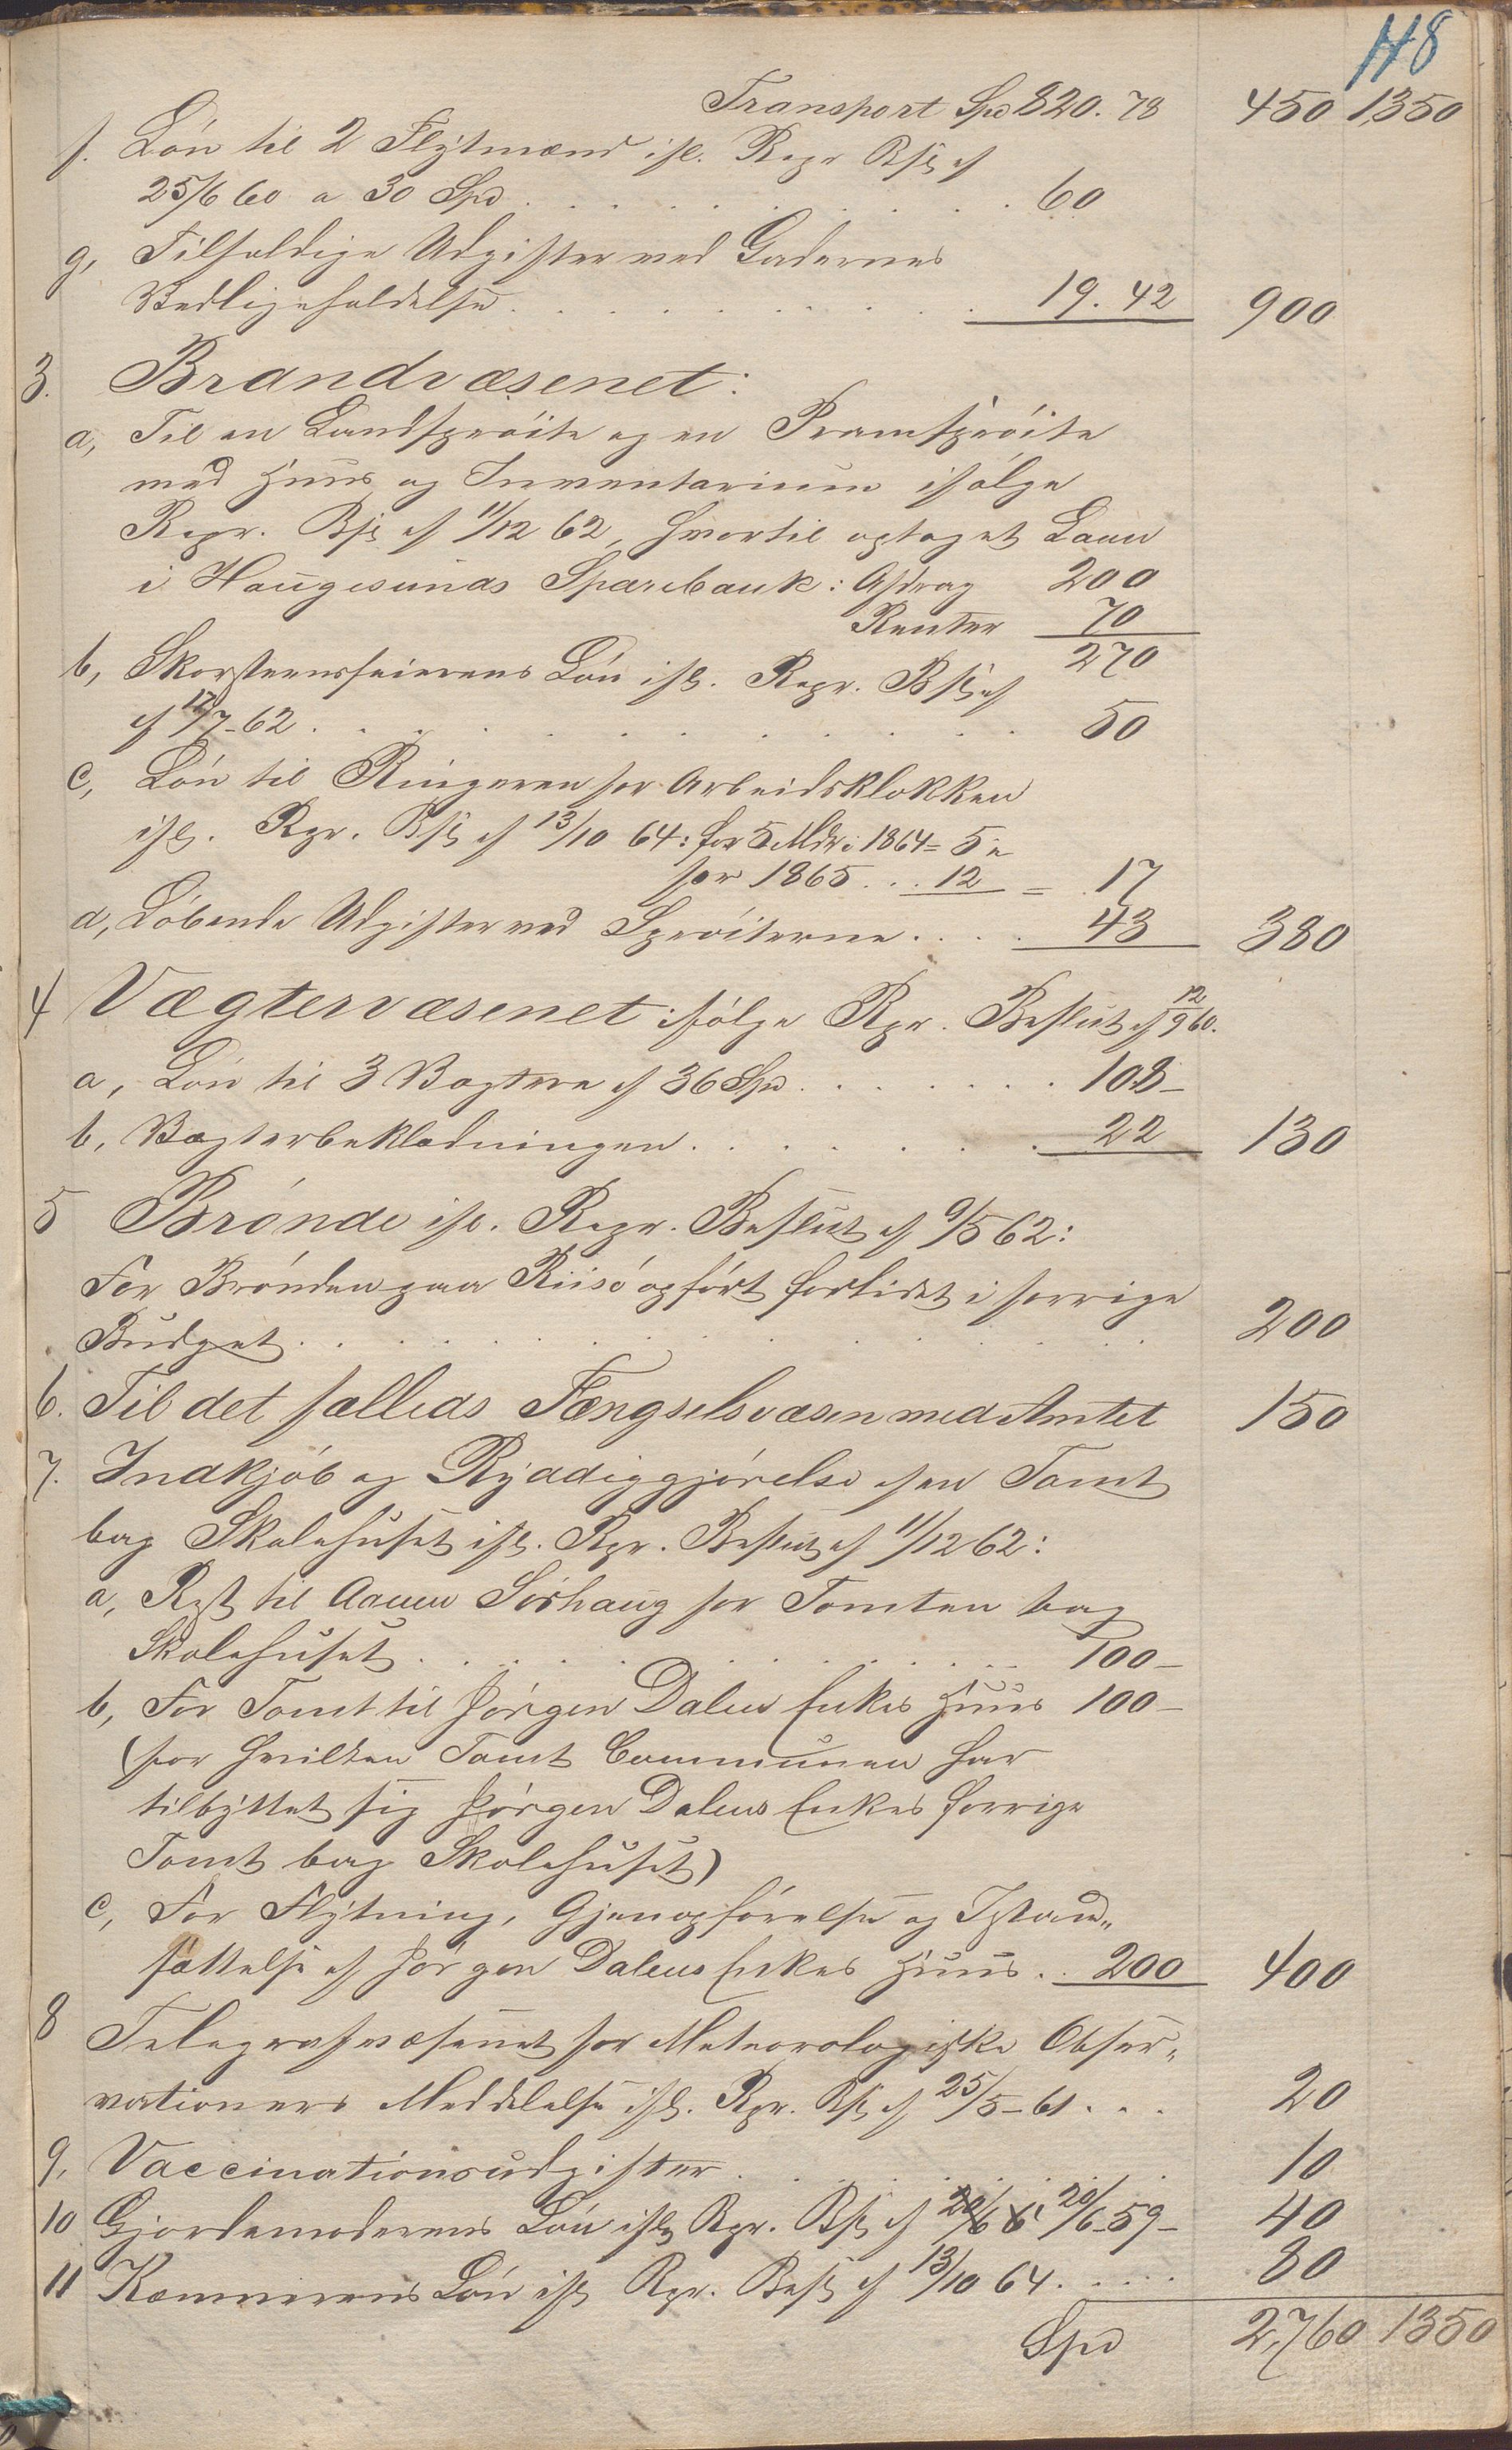 118
Transport Spd 820. 78 450 1350
f. Løn til 2 Flytmænd ifl. Repr Bsl. af
25/6 60 a 30 Spd . . . . . 60
g, Tilfældige Udgifter ved Gadernes
Vedligeholdelse . . . . . 19. 42 900
3. Brandvæsenet:
a, Til en Landsprøite og en Pramsprøite
med Huus og Inventarium ifølge
Repr. Bsl. af 11/12 62, hvortil optaget Laan
i Haugesunds Sparebank: Afdrag 200
Renter 70
270
b, Skorsteensfeierens Løn ifl. Repr. Bsl. af
af 17/7-62 . . . . . 50
c, Løn til Ringeren for Arbeidsklokken
ifl. Rpr. Bsl. af 13/10 64: for 5 Mdr i 1864 = 5
for 1865 . . . 12 = 17
d, Løbende Udgifter ved Sprøiterne . . . . 43 380
4 Vægtervæsenet ifølge Rpr. Beslut. af 12/9 60.
a, Løn til 3 Vægtere af 36 Spd . . . . . 108-
b, Vægterbeklædningen . . . . . 22 130
5 Brønde ifl. Repr. Beslut. af 9/5 62:
For Brønden paa Riisø opført forlidet i forrige
Budget . . . . . 200
6. Til det fælleds Fængselsvæsen med Amtet 150
7. Indkjøb og Ryddiggjørelse af en Tomt
bag Skolehuset ifl. Rpr. Beslut. af 11/12 62:
a, Rest til Aanen Sørhaug for Tomten bag
Skolehuset . . . . . 100-
b, For Tomt til Jørgen Dalens Enkes Huus 100-
(for hvilken Tomt Communen har
tilbyttet sig Jørgen Dalens Enkes forrige
Tomt bag Skolehuset)
c, For Flytning, Gjenopførelse og Istand„
sættelse af Jørgen Dalens Enkes Huus . . 200 400
8 Telegrafvæsenet for Meteorologiske Obser„
vationers Meddelelse ifl. Rpr. Bsl. af 25/5-61 . . . 20
9, Vaccinationsudgifter . . . . . 10
10 Gjordemoderens Løn ifl. Rpr. Bsl. af 20/6-59- 40
11 Kæmnerens Løn ifl. Rpr. Besl. af 13/10 64 . . . . . 80
Spd 2,760 1350